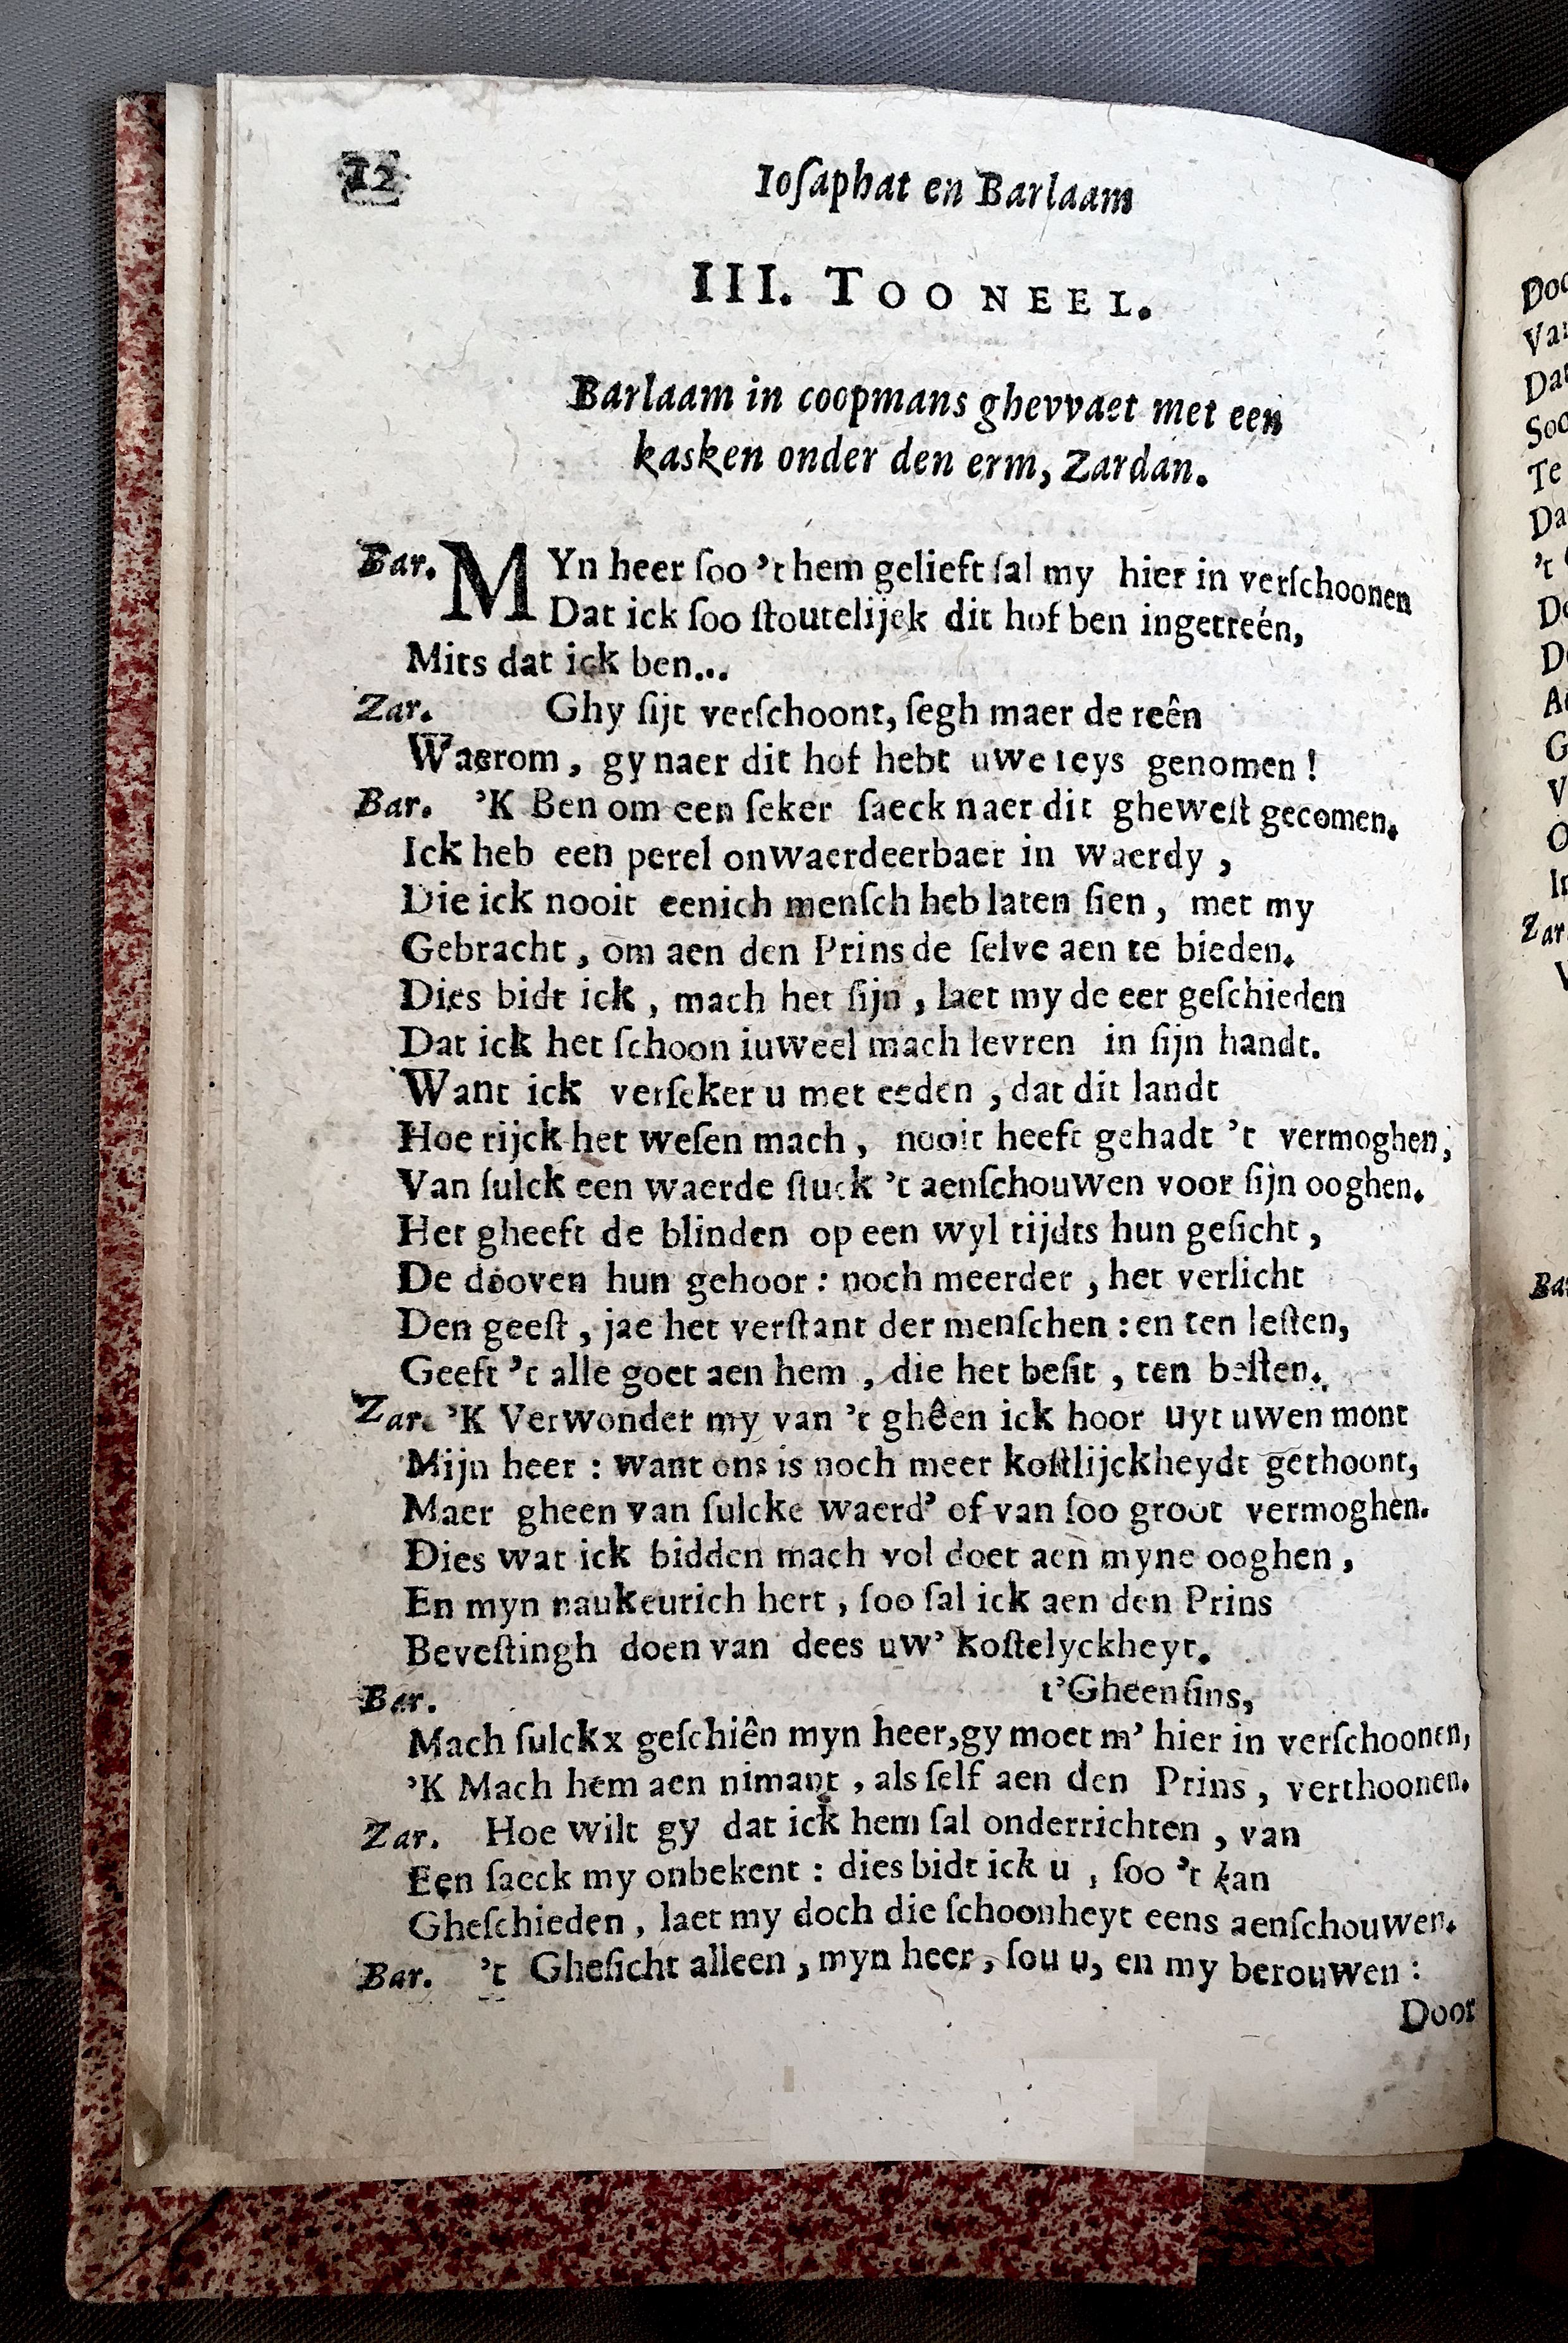 12
Ioſaphat en Barlaam
III. TOONEEL.
Barlaam in coopmans ghevvaet met een
kasken onder den erm, Zardan.
Bar. MYn heer ſoo 't hem gelieft ſal my hier in verſchoonen
Dat ick ſoo ſtoutelijck dit hof ben ingetreén,
Mits dat ick ben...
Zar. Ghy ſijt verſchoont, ſegh maer de reên
Waerom, gy naer dit hof hebt uwe reys genomen!
Bar. 'K Ben om een ſeker ſaeck naer dit gheweſt gecomen.
Ick heb een perel onwaerdeerbaer in waerdy,
Die ick nooit eenich menſch heb laten ſien, met my
Gebracht, om aen den Prins de ſelve aen te bieden.
Dies bidt ick, mach het ſijn, laet my de eer geſchieden
Dat ick het ſchoon iuweel mach levren in ſijn handt.
Want ick verſeker u met eeden, dat dit landt
Hoe rijck het weſen mach, nooit heeft gehadt 't vermoghen,
Van ſulck een waerde ſtuck 't aenſchouwen voor ſijn ooghen.
Het gheeft de blinden op een wyl tijdts hun geſicht,
De dooven hun gehoor: noch meerder, het verlicht
Den geeſt, jae het verſtant der menſchen: en ten leſten,
Geeft 't alle goet aen hem, die het beſit, ten beſten.
Zar. 'K Verwonder my van 't ghêen ick hoor uyt uwen mont
Mijn heer: want ons is noch meer koſtlijckheydt gethoont,
Maer gheen van ſulcke waerd' of van ſoo groot vermoghen.
Dies wat ick bidden mach vol doet aen myne ooghen,
En myn naukeurich hert, ſoo ſal ick aen den Prins
Beveſtingh doen van dees uw' koſtelyckheyt.
Bar. t'Gheenſins,
Mach ſulckx geſchiên myn heer, gy moet m' hier in verſchoonen,
'K Mach hem aen nimant, als ſelf aen den Prins, verthoonen.
Zar. Hoe wilt gy dat ick hem ſal onderrichten, van
Een ſaeck my onbekent: dies bidt ick u, ſoo 't kan
Gheſchieden, laet my doch die ſchoonheyt eens aenſchouwen.
Bar. 't Gheſicht alleen, myn heer, ſou u, en my berouwen:
Door